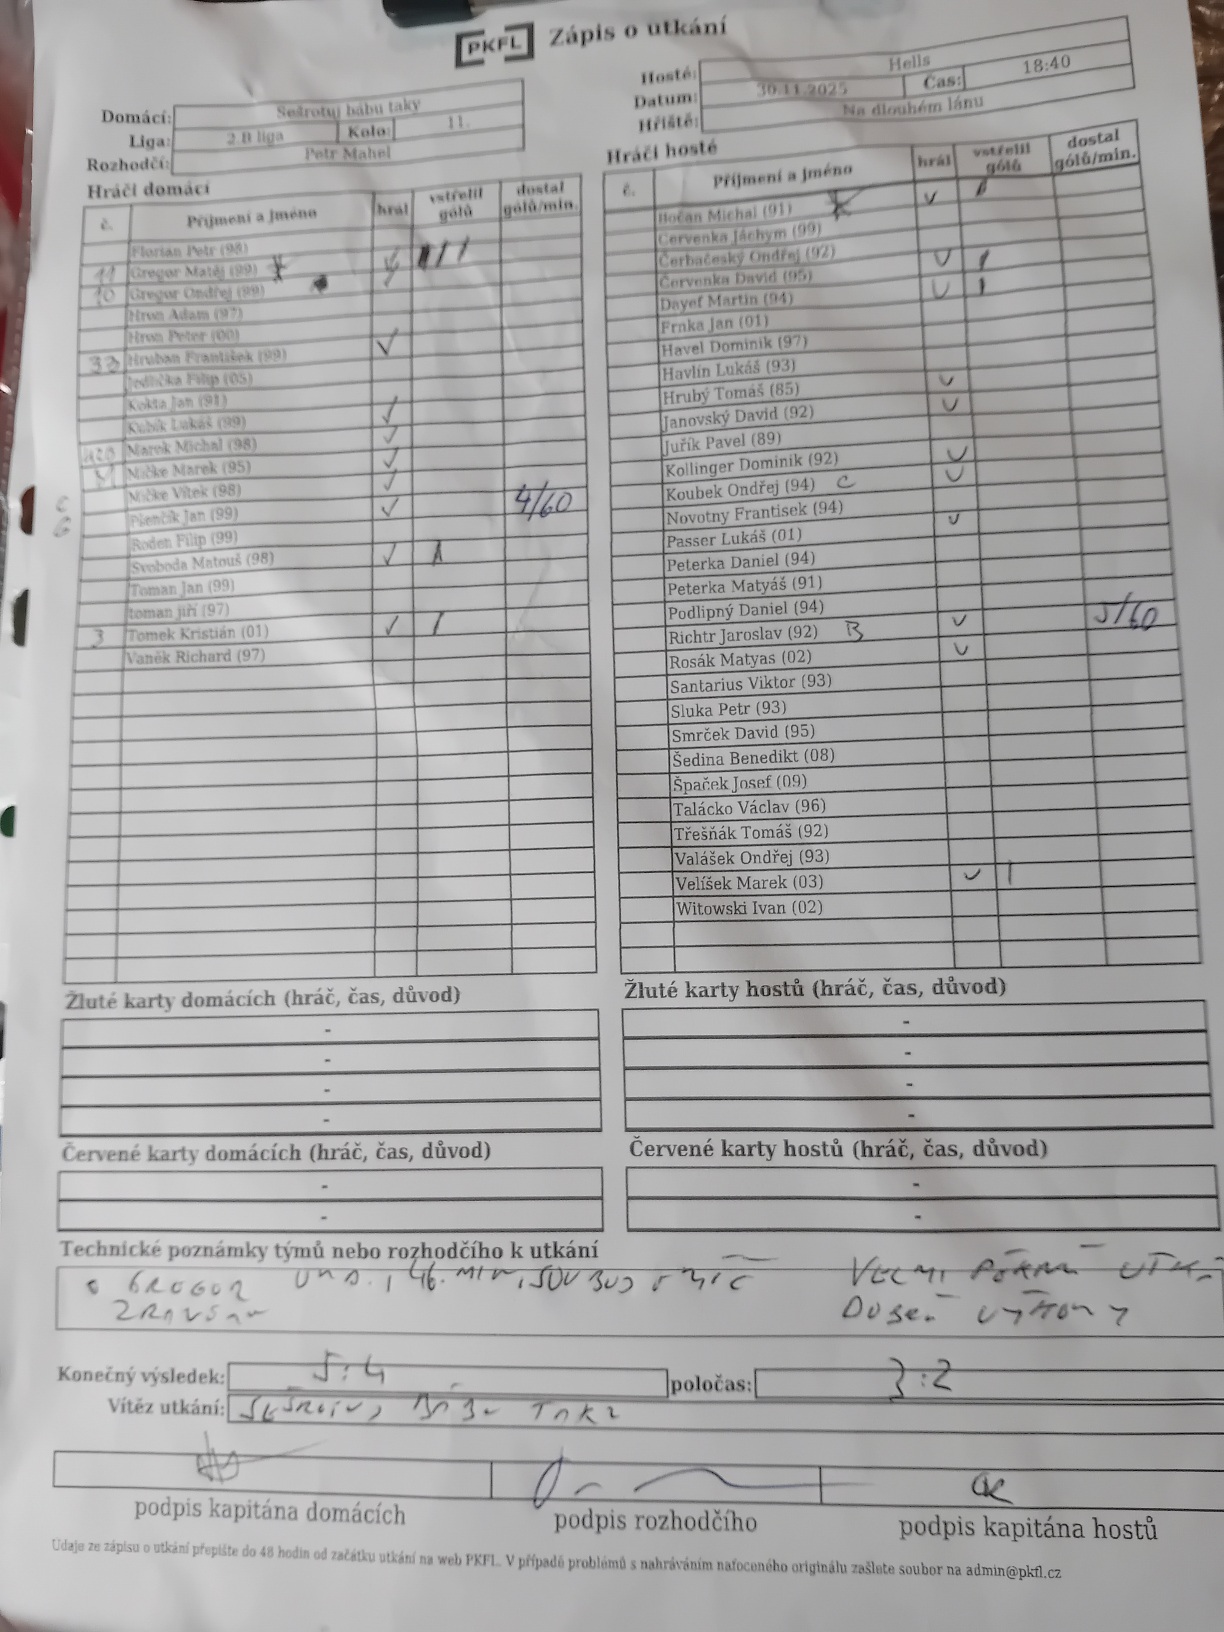 PKFL Zápis o utkání
Domácí: Sešrotuj bábu taky
Liga: 2.B liga Kolo: 11.
Rozhodčí: Petr Mahel
Hosté: Hells
Datum: 30.11.2025 Čas: 18:40
Hřiště: Na dlouhém lánu
Hráči domácí
č. Příjmení a jméno hrál vstřelil gólů dostal gólů/min.
Florián Petr (98)
11 Gregor Matěj (99)
10 Gregor Ondřej (99)
Hron Adam (97)
Hron Peter (00)
33 Hruban František (99)
Jedlička Filip (05)
Kokta Jan (91)
Kubík Lukáš (99)
Marek Michal (98)
Mičke Marek (95)
Mičke Vítek (98)
Plenčík Jan (99) 4/60
Roden Filip (99)
Svoboda Matouš (98)
Toman Jan (99)
toman jiří (97)
3 Tomek Kristián (01)
Vaněk Richard (97)
Hráči hosté
č. Příjmení a jméno hrál vstřelil gólů dostal gólů/min.
Bočan Michal (91)
Červenka Jáchym (99)
Čerbačeský Ondřej (92)
Červenka David (95)
Dayef Martin (94)
Frnka Jan (01)
Havel Dominik (97)
Havlín Lukáš (93)
Hrubý Tomáš (85)
Janovský David (92)
Juřík Pavel (89)
Kollinger Dominik (92)
Koubek Ondřej (94) C
Novotny Frantisek (94)
Passer Lukáš (01)
Peterka Daniel (94)
Peterka Matyáš (91)
Podlipný Daniel (94)
Richtr Jaroslav (92) B 5/60
Rosák Matyas (02)
Santarius Viktor (93)
Sluka Petr (93)
Smrček David (95)
Šedina Benedikt (08)
Špaček Josef (09)
Talácko Václav (96)
Třešňák Tomáš (92)
Valášek Ondřej (93)
Velíšek Marek (03)
Witowski Ivan (02)
Žluté karty domácích (hráč, čas, důvod)
-
-
-
-
Žluté karty hostů (hráč, čas, důvod)
-
-
-
-
Červené karty domácích (hráč, čas, důvod)
-
-
Červené karty hostů (hráč, čas, důvod)
-
-
Technické poznámky týmů nebo rozhodčího k utkání
46. MIN, SOUBOJ
VELMI
VÝKONY
Konečný výsledek: 5:4 poločas: 3:2
Vítěz utkání: SEŠROTUJ BÁBU TAKY
podpis kapitána domácích podpis rozhodčího podpis kapitána hostů
Údaje ze zápisu o utkání přepište do 48 hodin od začátku utkání na web PKFL. V případě problémů s nahráváním nafoceného originálu zašlete soubor na admin@pkfl.cz